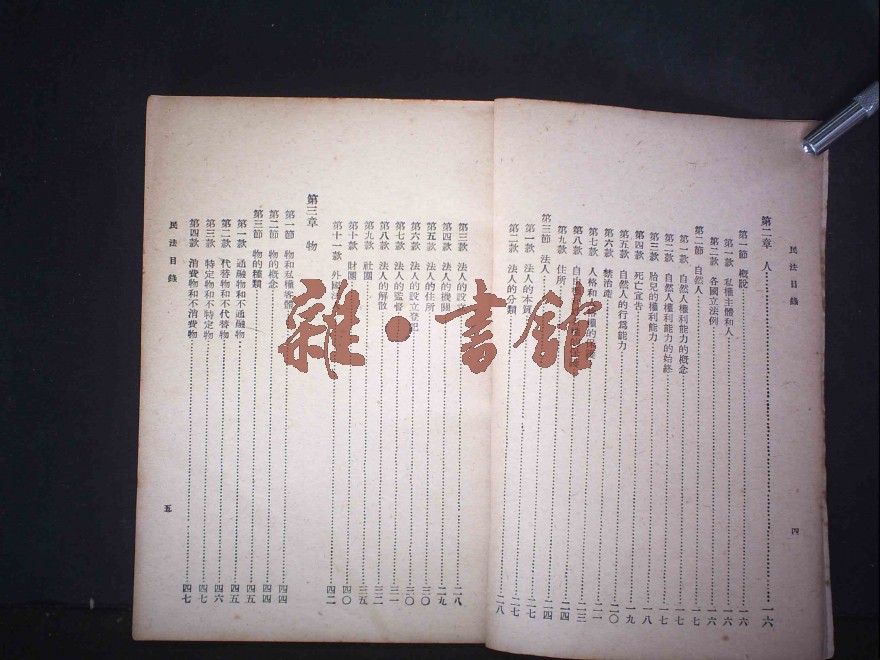 民法目錄
第二章 人……一六
第一節 概說……一六
第一款 私權主體和人……一六
第二款 各國立法例……一六
第二節 自然人……一七
第一款 自然人權利能力的概念……一七
第二款 自然人權利能力的始終……一七
第三款 胎兒的權利能力……一八
第四款 死亡宣告……一九
第五款 自然人的行爲能力……二〇
第六款 禁治產……二一
第七款 人格和
第八款 自由
第九款 住所……二四
第三節 法人……二四
第一款 法人的本質……二七
第二款 法人的分類……二八
四
第三款 法人的設立……二八
第四款 法人的機關……二九
第五款 法人的住所……三〇
第六款 法人的設立登記……三〇
第七款 法人的監督……三一
第八款 法人的解散……三二
第九款 社團……三五
第十款 財團……四〇
第十一款 外國法……四二
第三章 物
第一節 物和私權客體……四四
第二節 物的概念……四四
第三節 物的種類……四五
第一款 通融物和不通融物……四五
第二款 代替物和不代替物……四六
第三款 特定物和不特定物……四七
第四款 消費物和不消費物……四七
民法目錄
五
雜·書館